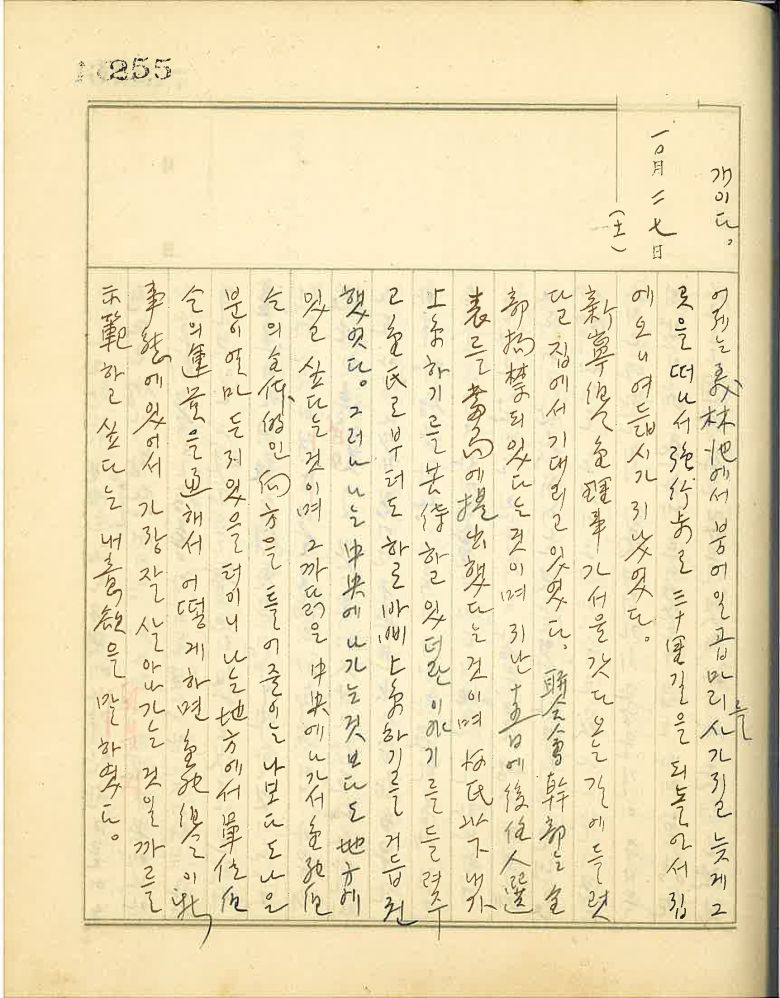 255
개이다。
一0月二七日
(土)
어제는 義林池에서 붕어 일곱마리를 사가지고 늦게 그
곳을 떠나서 强行步로 三十里길을 되돌아서 집
에 오니 여듧시가 지났었다。
新寧組 金理事가 서울 갓다 오는 길에 들렷
다고 집에서 기대리고 있엇다。聯合會幹部는 全
部拘禁되있다는 것이며 지난 十五日에 後任人選
表를 當局에 提出했다는 것이며 氏以下 내가
上京하기를 苦待하고 있더란 이야기를 들려주
고 金氏로부터도 하로바삐 上京하기를 거듭 권
했엇다。그러나 나는 中央에 나가는 것보다도 地方에
있고 싶다는 것이며 그 까닭은 中央에 나가서 金融組
合의 全体的인 向方을 틀어줄이는 나보다도 나은
분이 얼마든지 있을터이니 나는 地方에서 單位組
合의 運營을 通해서 어떻게 하면 金融組合이 新
事態에 있어서 가장 잘 살아나가는 것일까를
示範하고 싶다는 내 意欲을 말하였다。